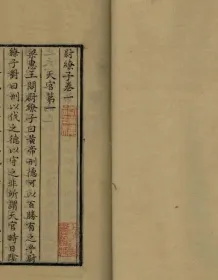 尉繚子卷一
天官第一
梁惠王問尉繚子曰黃帝刑德可以百勝有之乎尉
繚子對曰刑以伐之德以守之非所謂天官時日陰